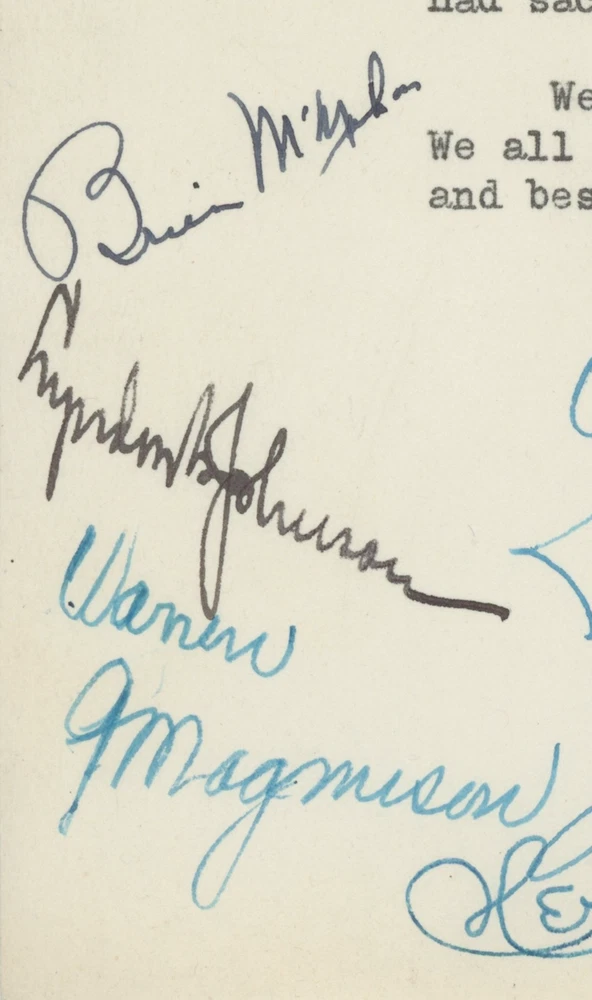 had sac
We
We all
and bes
Brien McMahon
Lyndon B Johnson
Warren
G Magnuson